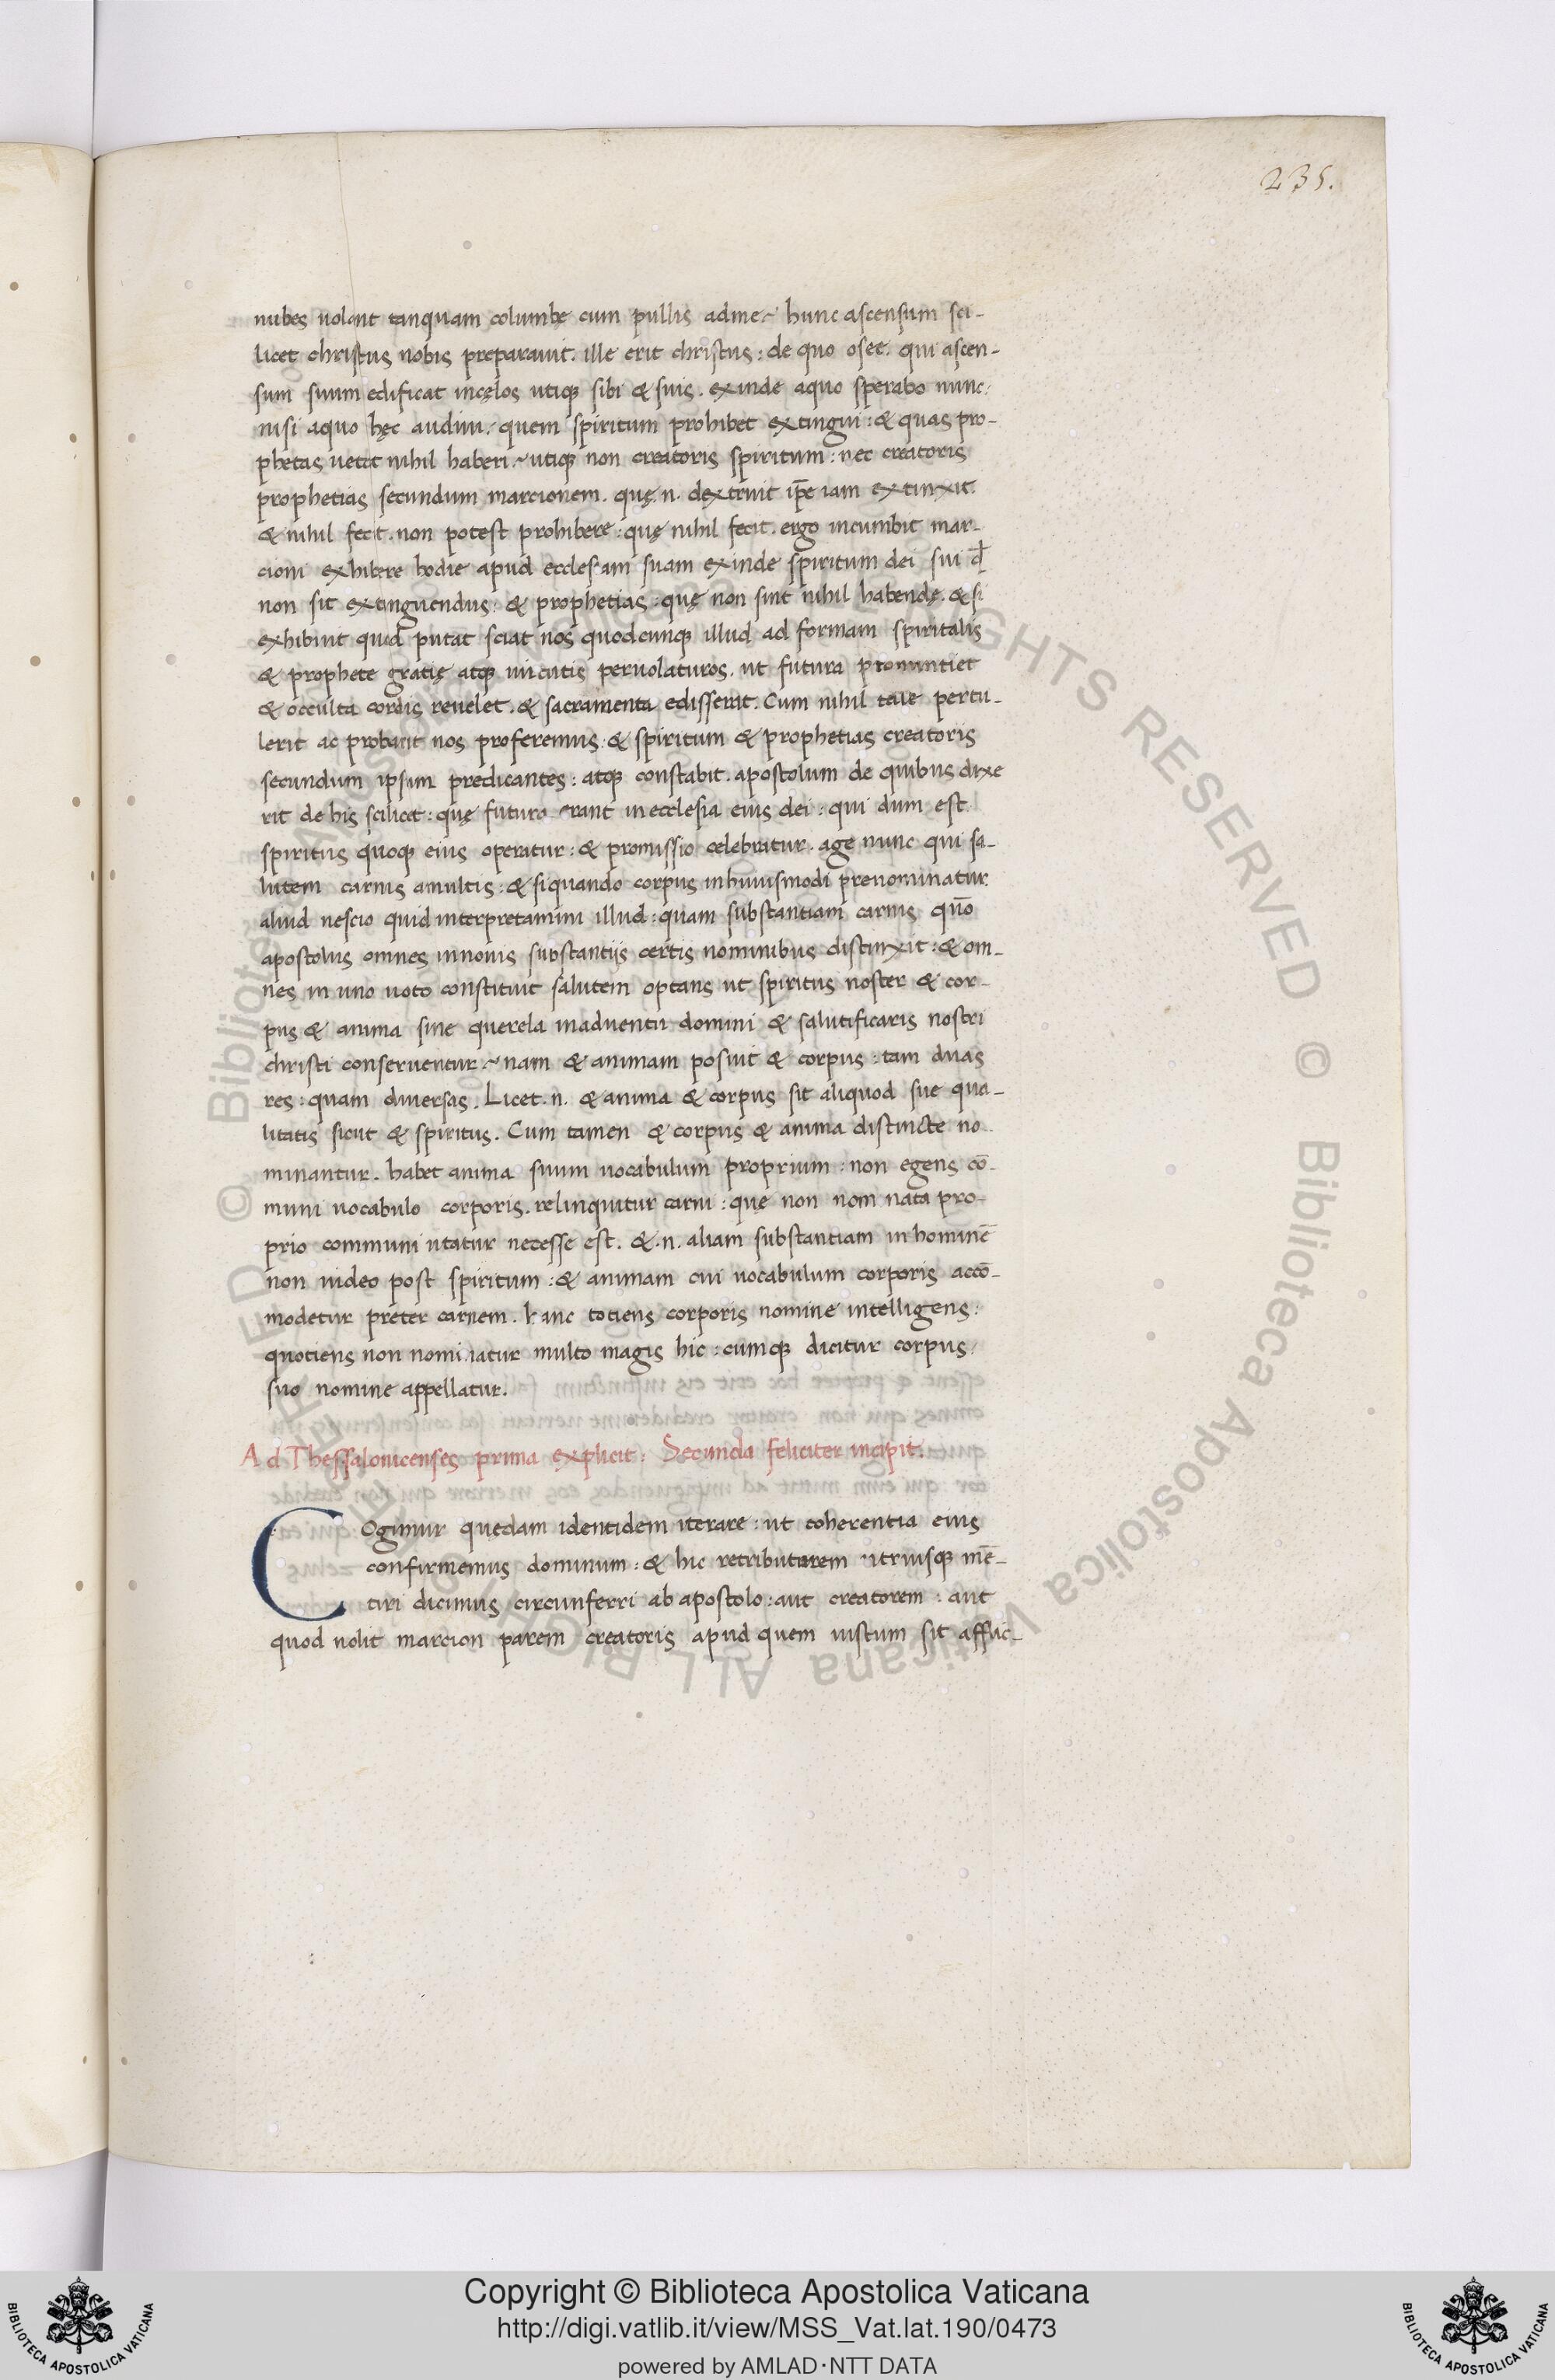 235.
nubes uolant tanquam columbę cum pullis adme. hunc ascensum sci-
licet christus nobis preparauit. ille erit christus: de quo osee. qui ascen-
sum suum edificat incęlos utiqꝫ sibi & suis. exinde aquo sperabo nunc:
nisi aquo hęc audiui. quem spiritum prohibet extingui: & quas pro-
phetas uetet nihil haberi. utiqꝫ non creatoris spiritum: nec creatoris
prophetias secundum marcionem. quę.n. dextruit ip̅e iam extinxit
& nihil fecit. non potest prohibere: quę nihil fecit. ergo incumbit mar-
cioni exhibere hodie apud ecclesiam suam exinde spiritum dei sui
non sit extinguendus: & prophetias: quę non sint nihil habendę. & si
exhibuit quid putat sciat nos quodcunqꝫ illud ad formam spiritalis
& prophete gratię atqꝫ uirtutis peruolaturos. ut futura pronuntiet
& occulta cordis reuelet. & sacramenta edisserat. Cum nihil tale pertu-
lerit ac probarit nos proferemus. & spiritum & prophetias creatoris
secundum ipsum predicantes: atqꝫ constabit. apostolum de quibus dixe
rit de his scilicet: quę futuro erant in ecclesia eius dei: qui dum est
spiritus quoqꝫ eius operatur: & promissio celebratur. age nunc qui sa-
lutem carnis amultis: & siquando corpus inhuiusmodi prenominatur
aliud nescio quid interpretamini illud: quam substantiam carnis quo̅
apostolus omnes innouis substantijs certis nominibus distinxit: & om-
nes in uno uoto constituit salutem optans ut spiritus noster & cor-
pus & anima sine querela inaduentu domini & salutificaris nostri
christi conseruentur. nam & animam posuit & corpus: tam duas
res: quam diuersas. Licet.n. & anima & corpus sit aliquod sue qua-
litatis sicut & spiritus. Cum tamen & corpus & anima distincte no-
minantur. habet anima suum uocabulum proprium: non egens co̅-
muni uocabulo corporis. relinquitur carni: quę non nominata pro-
prio communi utatur necesse est. &.n. aliam substantiam in homine̅
non uideo post spiritum: & animam cui uocabulum corporis acco̅-
modetur preter carnem. hanc totiens corporis nomine intelligens:
quotiens non nominatur multo magis hic: cumqꝫ dicitur corpus
suo nomine appellatur.
Ad Thessalonicenses prima explicit: Secunda feliciter incipit.
COgimur quedam identidem iterare: ut coherentia eius
confirmemus dominum: & hic retributorem utriusqꝫ me̅-
tiri dicimus circunferri ab apostolo: aut creatorem: aut
quod nolit marcion parem creatoris apud quem iustum sit afflic-
© Biblioteca Apostolica Vaticana ALL RIGHTS RESERVED
Copyright © Biblioteca Apostolica Vaticana
http://digi.vatlib.it/view/MSS_Vat.lat.190/0473
powered by AMLAD·NTT DATA
BIBLIOTECA APOSTOLICA VATICANA
BIBLIOTECA APOSTOLICA VATICANA